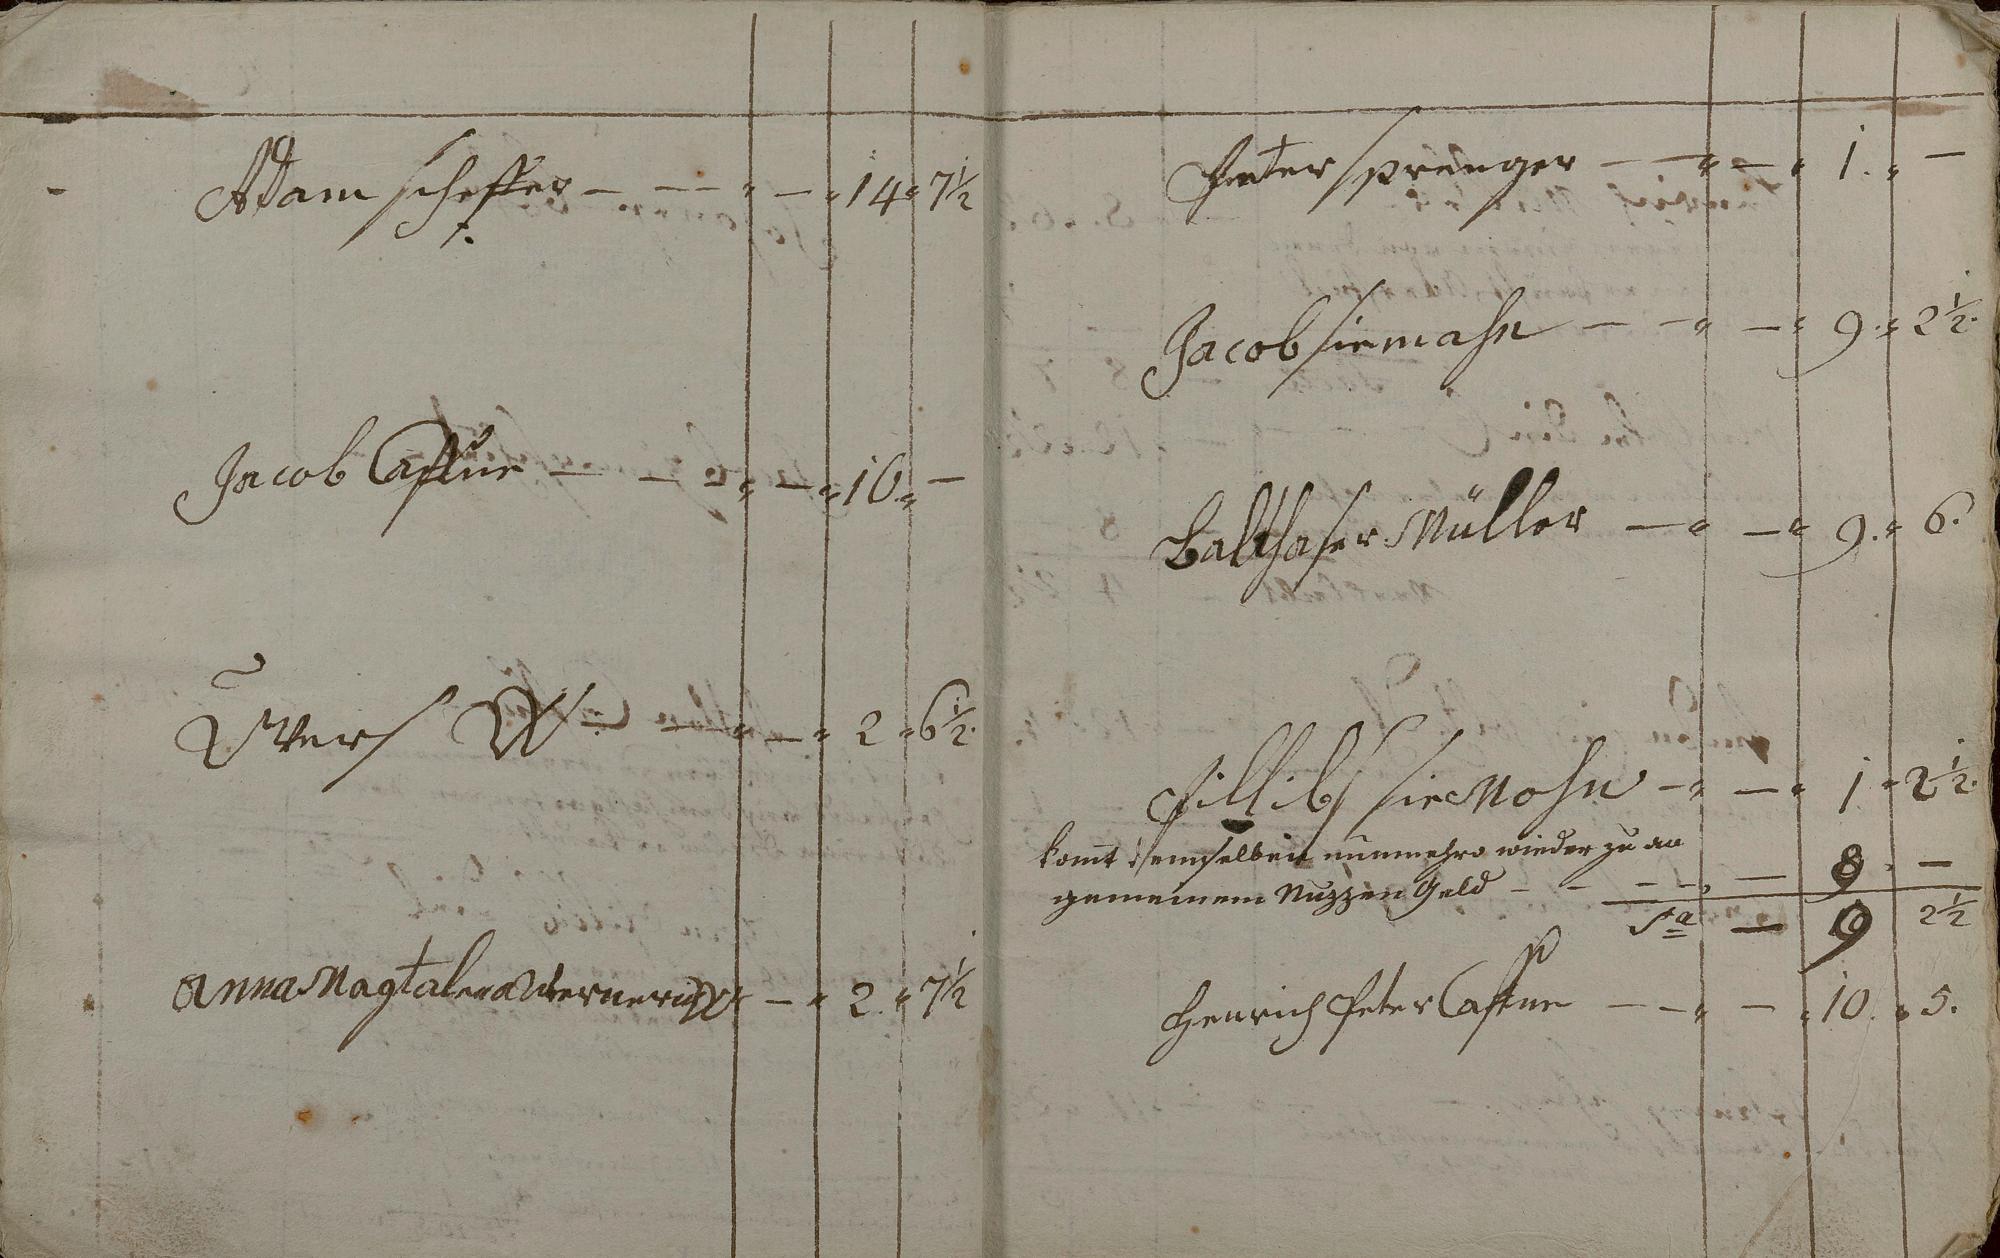 Adam Scheffer — — — " — " 14 " 7½
Jacob Castne — — — " — " 10 " —
2 " 6½
Anna Magtalena Wernerin " — " 2 " 7½
Peter Sprenger — — " — " 1. " —
Jacob Siemahn — — " — " 9. " 2½.
Balthaser Müller — " — " 9. " 6.
Fillibs Siemohn — " — " 1 " 2½.
komt demselben nunmehro wieder zu an
gemeinem Nuzzen Geld — — — — — 8. —
Sa — 9 2½
Henrich Peter Castne — — " — " 10. " 5.